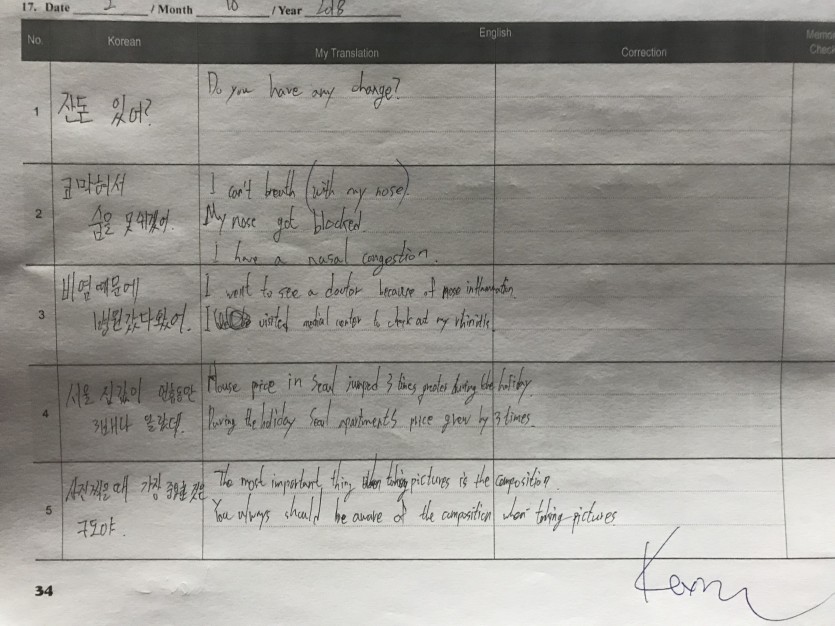 17. Date 2 / Month 10 / Year 2018
No. Korean English Memor
My Translation Correction Check
1 잔돈 있어? Do you have any change?
2 코막혀서 I can't breath (with my nose).
숨을 못쉬겠어. My nose got blocked.
I have a nasal congestion.
3 비염때문에 I went to see a doctor because of nose inflammation
병원갔다왔어. I visited medial center to check out my rhinitis.
4 서울 집값이 House price in Seoul jumped 3 times greater during the holiday.
3배나 올랐대. During the holiday Seoul apartments price grew by 3 times.
5 사진찍을때 가장 중요한 것은 The most important thing when taking pictures is the composition.
구도야. You always should be aware of the composition when taking pictures.
34